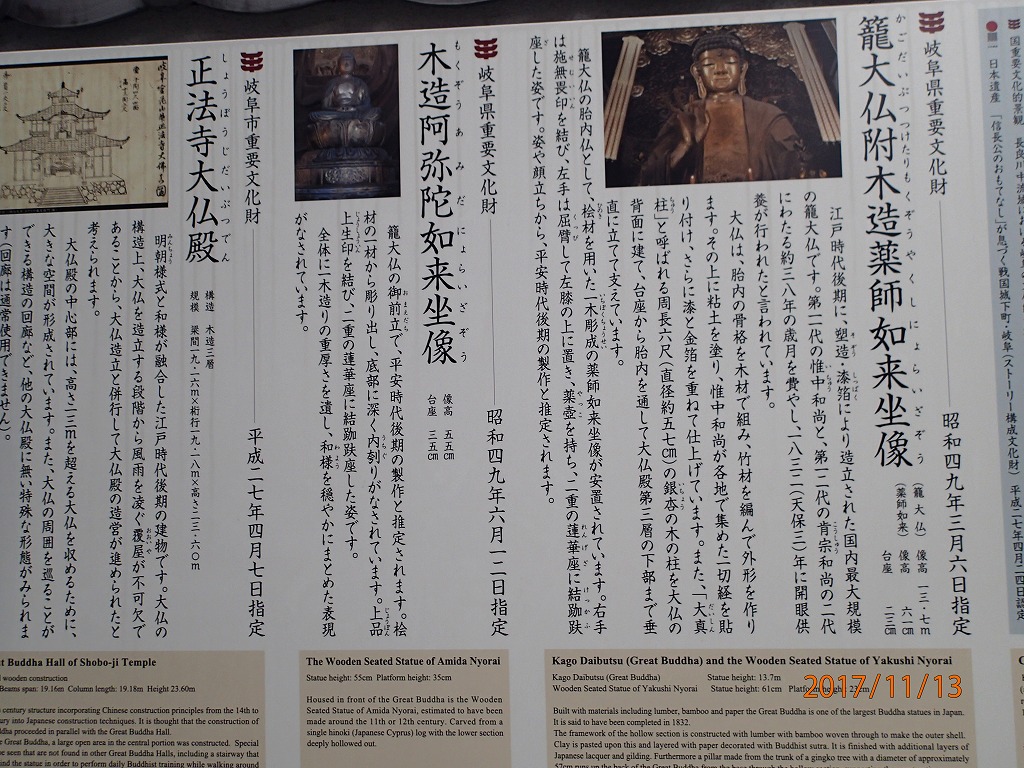 国重要文化的景観
日本遺産 「信長公のおもてなし」が息づく戦国城下町・岐阜(ストーリー構成文化財) 平成二七年四月二四日認定
岐阜県重要文化財 昭和四九年三月六日指定
籠大仏附木造薬師如来坐像
かごだいぶつつけたりもくぞうやくしにょらいざぞう
(籠大仏) 像高 一三・七m
(薬師如来) 像高 六一cm
台座 二三cm
江戸時代後期に、塑造・漆箔により造立された国内最大規模
の籠大仏です。第二代の惟中和尚と、第一二代の肯宗和尚の二代
にわたる約三八年の歳月を費やし、一八三二(天保三)年に開眼供
養が行われたと言われています。
大仏は、胎内の骨格を木材で組み、竹材を編んで外形を作り
ます。その上に粘土を塗り、惟中和尚が各地で集めた一切経を貼
り付け、さらに漆と金箔を重ねて仕上げています。また、「大真
柱」と呼ばれる周長六尺(直径約五七cm)の銀杏の木の柱を大仏の
背面に建て、台座から胎内を通して大仏殿第三層の下部まで垂
直に立てて支えています。
籠大仏の胎内仏として、桧材を用いた一木彫成の薬師如来坐像が安置されています。右手
は施無畏印を結び、左手は屈臂して左膝の上に置き、薬壺を持ち、二重の蓮華座に結跏趺
座した姿です。姿や顔立ちから、平安時代後期の製作と推定されます。
岐阜県重要文化財 昭和四九年六月一二日指定
木造阿弥陀如来坐像
もくぞうあみだにょらいざぞう
像高 五五cm
台座 三五cm
籠大仏の御前立で、平安時代後期の製作と推定されます。桧
材の一材から彫り出し、底部に深く内刳りがなされています。上品
上生印を結び、二重の蓮華座に結跏趺座した姿です。
全体に一木造りの重厚さを遺し、和様を穏やかにまとめた表現
がなされています。
岐阜市重要文化財 平成二七年四月七日指定
正法寺大仏殿
しょうぼうじだいぶつでん
構造 木造三層
規模 梁間一九・一六m×桁行一九・一八m×高さ二三・六〇m
明朝様式と和様が融合した江戸時代後期の建物です。大仏の
構造上、大仏を造立する段階から風雨を凌ぐ覆屋が不可欠で
あることから、大仏造立と併行して大仏殿の造営が進められたと
考えられます。
大仏殿の中心部には、高さ一三mを超える大仏を収めるために、
大きな空間が形成されています。また、大仏の周囲を巡ることが
できる構造の回廊など、他の大仏殿に無い特殊な形態がみられま
す(回廊は通常使用できません)。
t Buddha Hall of Shobo-ji Temple
wooden construction
Beams span: 19.16m Column length: 19.18m Height 23.60m
century structure incorporating Chinese construction principles from the 14th to
ury into Japanese construction techniques. It is thought that the construction of
ddha proceeded in parallel with the Great Buddha Hall.
e Great Buddha, a large open area in the central portion was constructed. Special
be seen that are not found in other Great Buddha Halls, including a stairway that
ind the statue in order to perform daily Buddhist training while walking around
The Wooden Seated Statue of Amida Nyorai
Statue height: 55cm Platform height: 35cm
Housed in front of the Great Buddha is the Wooden
Seated Statue of Amida Nyorai, estimated to have been
made around the 11th or 12th century. Carved from a
single hinoki (Japanese Cyprus) log with the lower section
deeply hollowed out.
Kago Daibutsu (Great Buddha) and the Wooden Seated Statue of Yakushi Nyorai
Kago Daibutsu (Great Buddha) Statue height: 13.7m
Wooden Seated Statue of Yakushi Nyorai Statue height: 61cm Platform height: 23cm
Built with materials including lumber, bamboo and paper the Great Buddha is one of the largest Buddha statues in Japan.
It is said to have been completed in 1832.
The framework of the hollow section is constructed with lumber with bamboo woven through to make the outer shell.
Clay is pasted upon this and layered with paper decorated with Buddhist sutra. It is finished with additional layers of
Japanese lacquer and gilding. Furthermore a pillar made from the trunk of a gingko tree with a diameter of approximately
2017/11/13